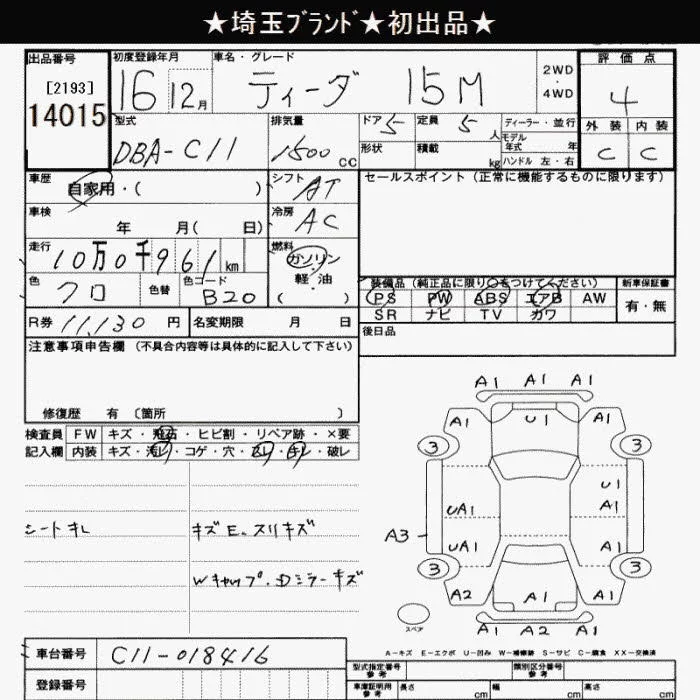 ★埼玉ﾌﾞﾗﾝﾄﾞ★初出品★
出品番号
[2193]
14015
初度登録年月
16 12月
車名・グレード
ティーダ 15M
2WD
・
4WD
評価点
4
外装 内装
C C
型式
DBA-C11
排気量
1500 CC
ドア 5
定員 5人
形状
積載 kg
ディーラー・並行
モデル年式 年
ハンドル 左・右
車歴
自家用・( )
シフト AT
車検
年 月( 日)
冷房 AC
走行
10万0千961 km
燃料
ガソリン
・
軽・油
( )
色
クロ
色替
色コード
B20
セールスポイント(正常に機能するものに限ります)
装備品(純正品に限り○をつけてください)
PS PW ABS エアB AW
SR ナビ TV カワ
新車保証書
有・無
R券 11,130 円
名変期限 月 日
後日品
注意事項申告欄(不具合内容等は具体的に記入して下さい)
修復歴 有〔箇所 〕
検査員
記入欄
FW キズ・飛石・ヒビ割・リペア跡・×要
内装 キズ・汚レ・コゲ・穴・・キレ・破レ
シートキレ
キズE、スリキズ
Wキャップ・Dミラーキズ
A1 A1 A1
A1 U1 A1
3 3
U1
UA1 A1
A3
UA1 A1
3 3
A2 A1 A1
A1 A2 A1
スペア
A-キズ E-エクボ U-凹み W-補修跡 S-サビ C-腐食 XX-交換済
車台番号 C11-018416
登録番号
型式指定番号
参考
類別区分番号
参考
車庫証明用
参考
長さ cm
幅 cm
高さ cm